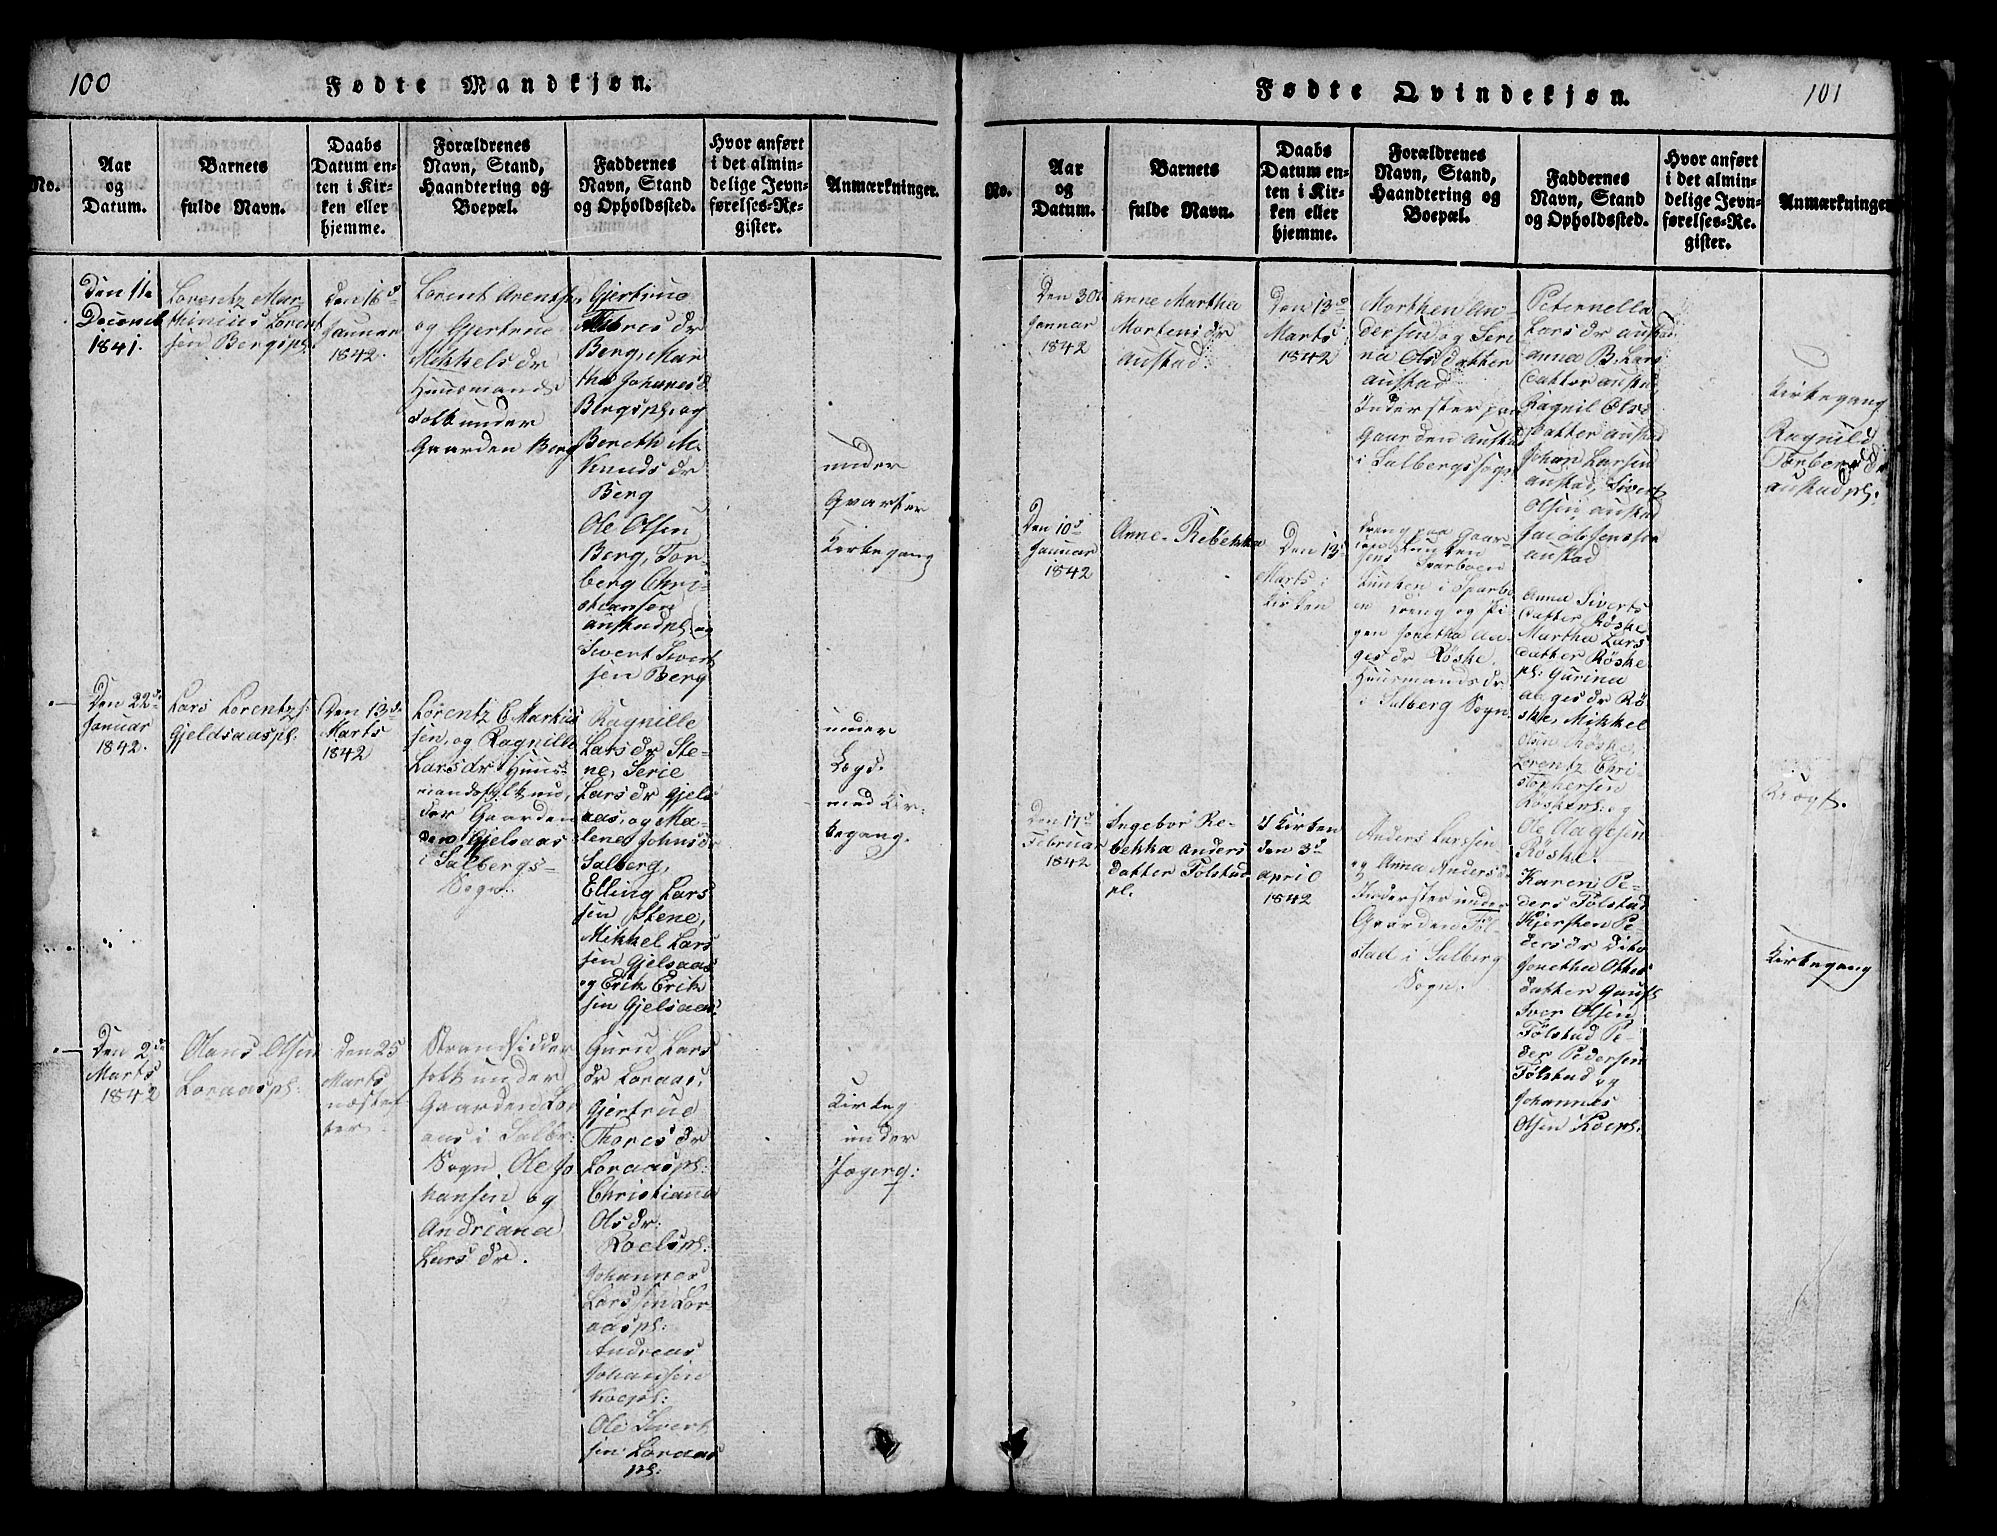 100
Fødte Mandkjøn.
No.
Aar
og
Datum.
Barnets
fulde Navn.
Daabs
Datum en-
ten i Kir-
ken eller
hjemme.
Forældrenes
Navn, Stand,
Haandtering og
Boepæl.
Faddernes
Navn, Stand
og Opholdssted.
Hvor anført
i det almin-
delige Jevn-
førelses-Re-
gister.
Anmærkninger.
Den 11te
Decemb
1841.
Lorentz Mar
thinius Lorent
sen Bergspl.
Den 16d
Januar
1842.
Lorent Arentsen
og Gjertrue
Mikkelsdr
Huusmands
folk under
Gaarden Berg
Gjertrue
Thoresdr
Berg, Mar
tha Johanesd
Bergspl. og
Bereth M.
Knudsdr
Berg
Ole Olsen
Berg, Tor-
berg Chri-
stiansen
austadpl. og
Sivert Sivert
sen Berg
under
Qvarter
Kirkegang
Den 22de
Januar
1842.
Lars Lorentzs:
Gjeldsaaspl:
Den 13de
Marts
1842
Lorentz E Markus
sen, og Ragnille
Larsdr Huus-
mandsfolk un-
der Gaarden
Gjelsaas
i Salbergs-
Sogn.
Ragnille
Larsdr Ste-
ne, Serie
Larsdr Gjels
aas, og Ma-
lena Johnsdr
Salberg,
Elling Lars
sen Stene,
Mikkel Lars
sen Gjelsaas
og Erik Erik
sen Gjelsaas.
under
Lægd.
med Kir-
kegang.
Den 2de
Marts
1842
Olaus Olsen
Loraaspl:
Den 25
Marts
næstef
ter
Strandsidder
folk under
Gaarden Lor
aas i Salbr:
Sogn Ole Jo
hansen og
Andriana
Larsdr.
Guru Lars
dr Loraas,
Gjertrue
Thoresdr
Loraaspl:
Christiana
Olsdr:
Roelspl.
Johannes
Larssen Lor
aaspl:
Andreas
Johansen
Koepl:
Ole Sivert
sen Loraas
pl:
Kirkeg
under
Jægerg:
101
Fødte Qvindekjøn.
No.
Aar
og
Datum.
Barnets
fulde Navn.
Daabs
Datum en-
ten i Kir-
ken eller
hjemme.
Forældrenes
Navn, Stand,
Haandtering og
Boepæl.
Faddernes
Navn, Stand
og Opholdssted.
Hvor anført
i det almin-
delige Jevn-
førelses-Re-
gister.
Anmærkninger
Den 30te
Januar
1842
Anne Martha
Mortensdr
austad.
Den 13d
Marts
1842
Morthen An-
dersen og Seri
na Olsdatter
austad
Inderster paa
Gaarden Austad
i Salbergs sogn
Peternella
Larsdr austad
anna B. Lars
datter austad,
Ragnil Ols
datter austad
Johan Larsen
austad, Sivert
Olsen austad
Jacob Jensen
austad
Kirkegang
Ragnild
Torbersdr
austadpl.
Den 10d
Januar
1842
Anne-Rebekka
Den 13d
Marts i
Kirken
Dreng paa Gaar-
den Tunken
Sparboen
Tunken i Sparbo
en Dreng og Pi-
gen Jonetha An-
gesdr Røske.
Huusmandsdr
i Salberg Sogn.
Anna Siverts
datter Røske
Martha Lars
datter Røske
pl: Gurina
Aagesdr Rø
ske, Mikkel
Olsen Røske,
Lorentz Chri-
stophersen
Røskepl. og
Ole Aagesen
Røske.
Den 17d
Februar
1842
Ingebor Re-
bekka Anders
datter Følstad
pl.
I Kirken
den 3d
april
1842
Anders Larssen
og Anna Andersdr
Inderster under
Gaarden Føl-
stad i Salberg
Sogn.
Karen Pe-
ders Følstad
Kjersten Pe-
dersdr Dito
Jonetha Ottes
datter Gausf
Iver Olsen
Følstad Pe-
der Pedersen
Følstad og
Johannes
Olsen Koepl.
Kirkegang